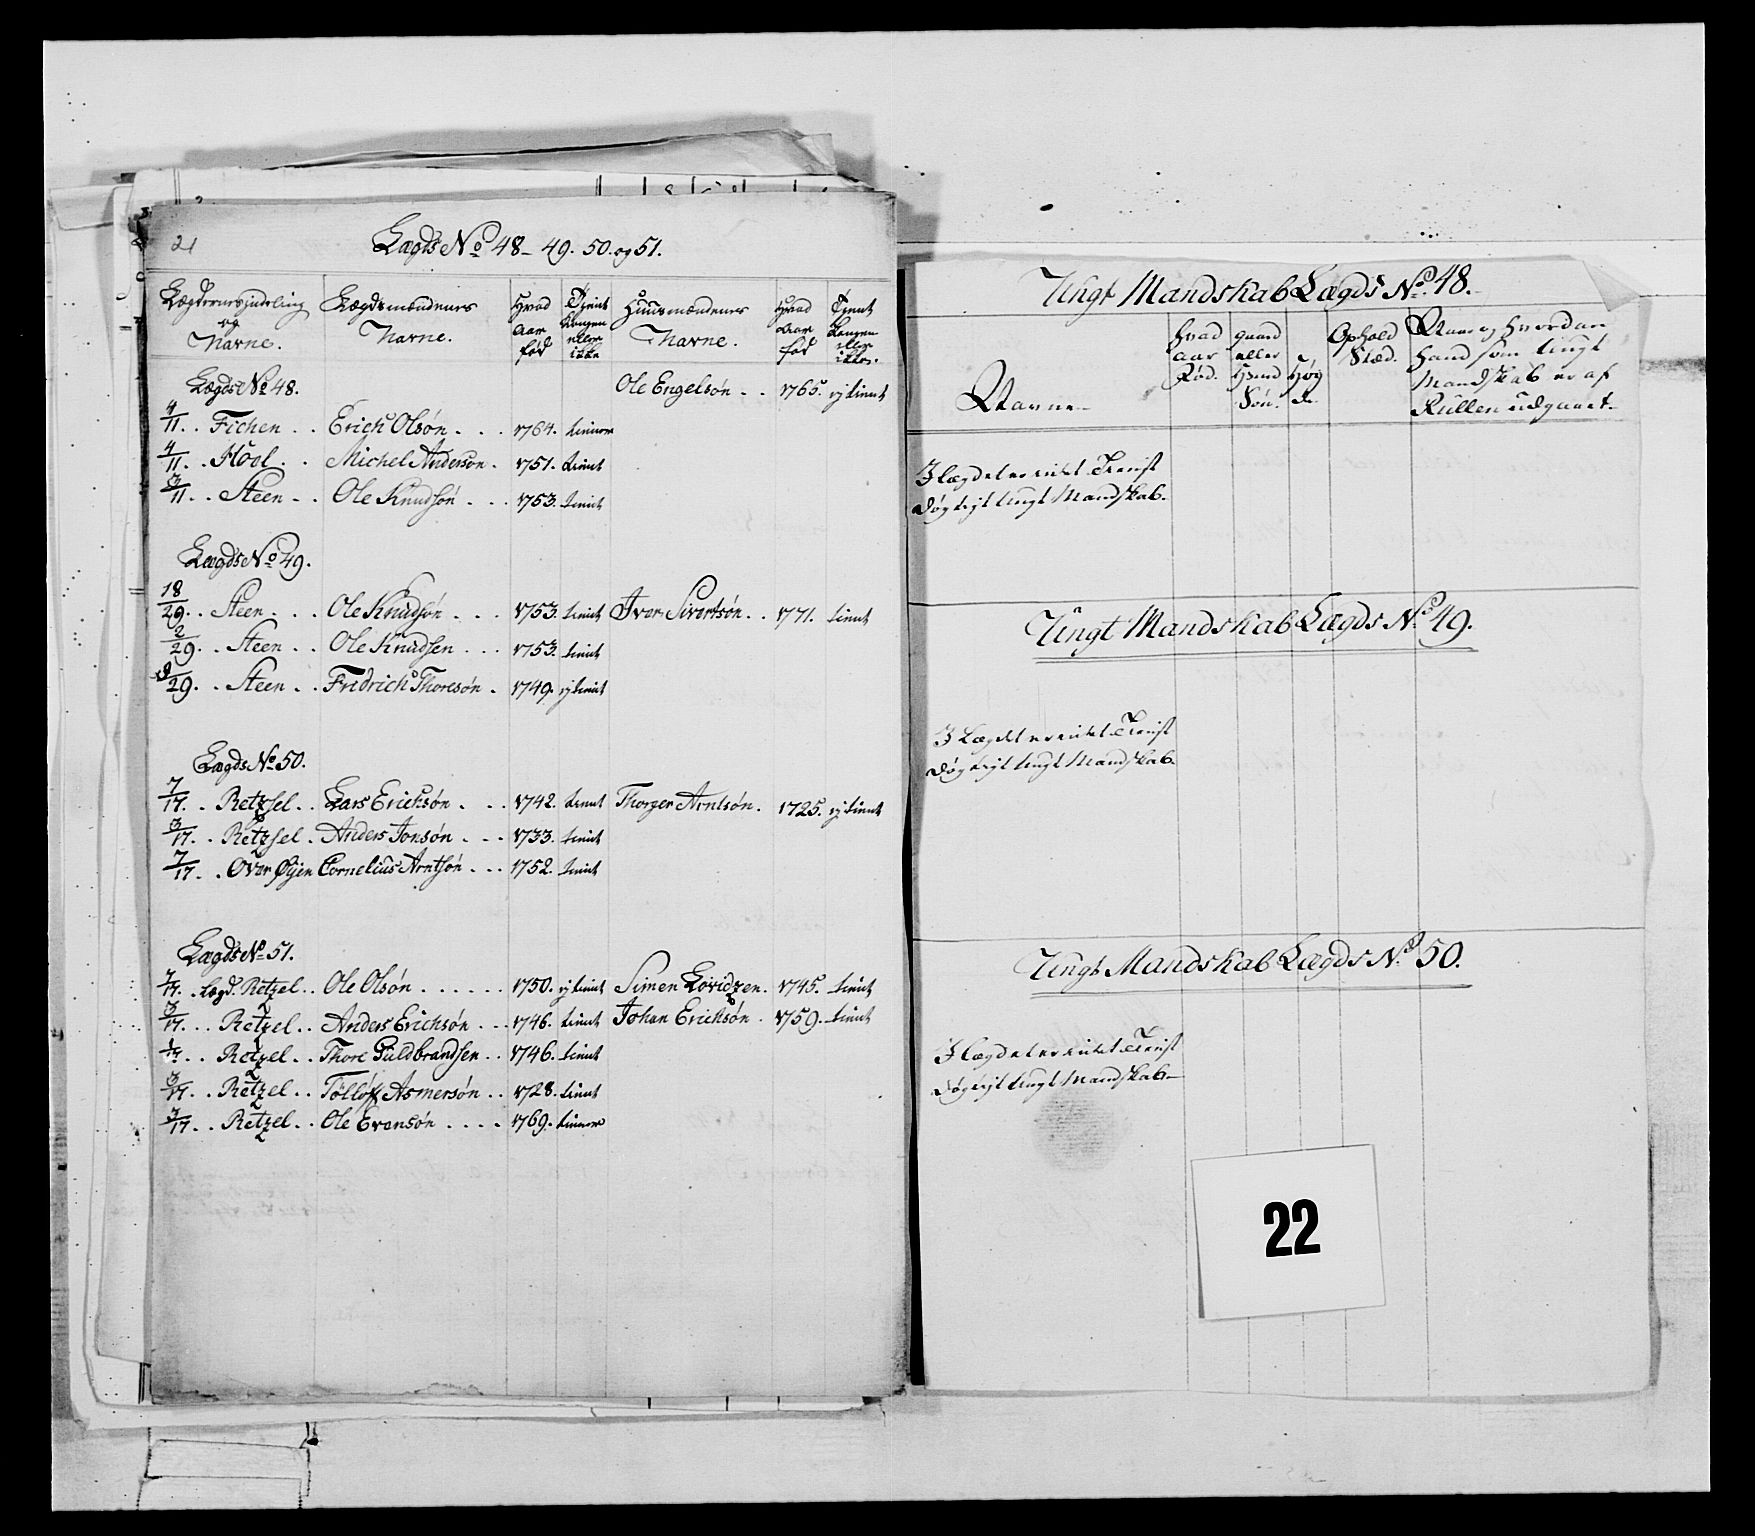 21
Lægds No 48- 49. 50. og 51.
Lægdernes jndeling og Navne.
Lægdsmændenes Navne.
Hvad aar fød
Tjent kongen eller ikke
Huusmændenes Navne.
Hvad aar fød
Tjent kongen eller ikke.
Lægds No 48. Ole Engelsøn . . 1765. ej tient
4/11. . Fichen . . Erich Olsøn . . . 1764. tiener
4/11. . Moel . . Michel Andersøn . 1751. tient
3/11. . Steen . . Ole Knudsøn . . . 1753. tient
Lægds No 49.
18/29. . Steen . . . Ole Knudsøn . . . 1753. tient Iver Sivertsøn . . 1771. tient
2/29. . Steen . . Ole Knudsen . . . 1753. tient
9/29. . Steen . . Fridrich Thoresøn . 1749. ej tient
Lægds No 50.
7/17. . Retzsel . . Lars Erichsøn . . . 1742. tient Thorger Arntsøn . 1725. ej tient
3/17. . Retzsel . Anders Jonsøn . . . 1733. tient
7/17. . Over Øyen Cornelius Arntsøn . . . 1752. tient
Lægds No 51.
7/17. . Lægd. Retzel . . Ole Olsøn . . . . . . 1750. ej tient Simen Lovidzen . 1745. tient
3/17. . . Retzel . . Anders Erichsøn . . . 1746. tient Johan Erichsøn . 1759. tient
1/17. . . Retzel . . Thore Guldbrandsen . . 1746. tient
3/17. . Retzel . . Tølløf Asmersøn . . 1728. tient
3/17. . Retzel . . Ole Evensøn . . . . 1769. tiener
Ungt Mandskab Lægds No 48.
Navne
hvad aar Fød.
gaard eller Huus Søn.
Høyde.
Ophold Stæd.
Naar og hvordan hand som ungt Mandskab er af Rullen udgaaet.
I Lægdet er intet Tienst
døgtigt ungt Mandskab.
Ungt Mandskab Lægds No 49.
I Lægdet er intet Tienst
døgtigt ungt Mandskab.
Ungt Mandskab Lægds No 50.
I Lægdet er intet Tienst
døgtigt ungt Mandskab
22